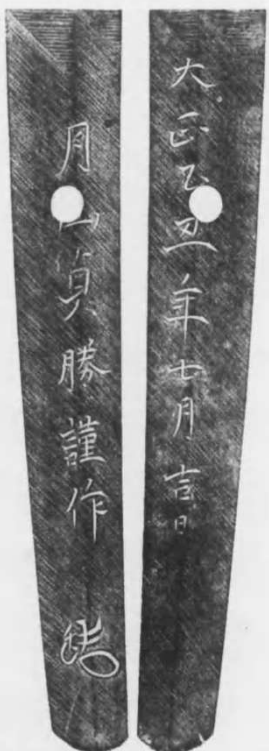 大正乙丑年十一月吉日
月山貞勝謹作